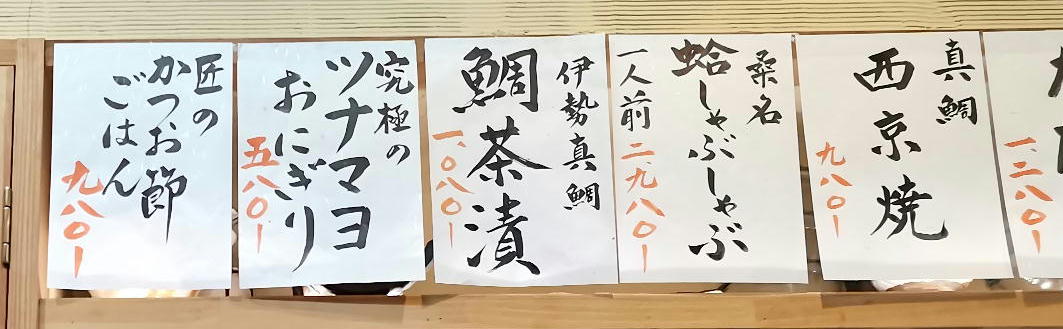 一、二八〇ー
真鯛
西京焼
九八〇ー
桑名
蛤しゃぶしゃぶ
一人前 二、九八〇ー
伊勢真鯛
鯛茶漬
一、〇八〇ー
究極の
ツナマヨ
おにぎり
五八〇ー
匠の
かつお節
ごはん
九八〇ー